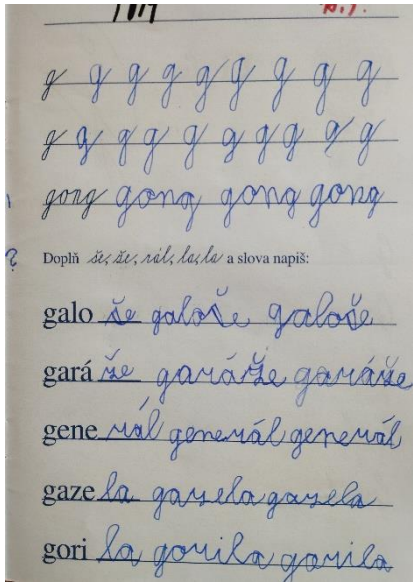 g g g g g g g g g
g g g g g g g g g g
gong gong gong gong
Doplň še, že, rál, la, la a slova napiš:
galo še galoše galoše
gará že garáže garáže
gene rál generál generál
gaze la gazela gazela
gori la gorila gorila